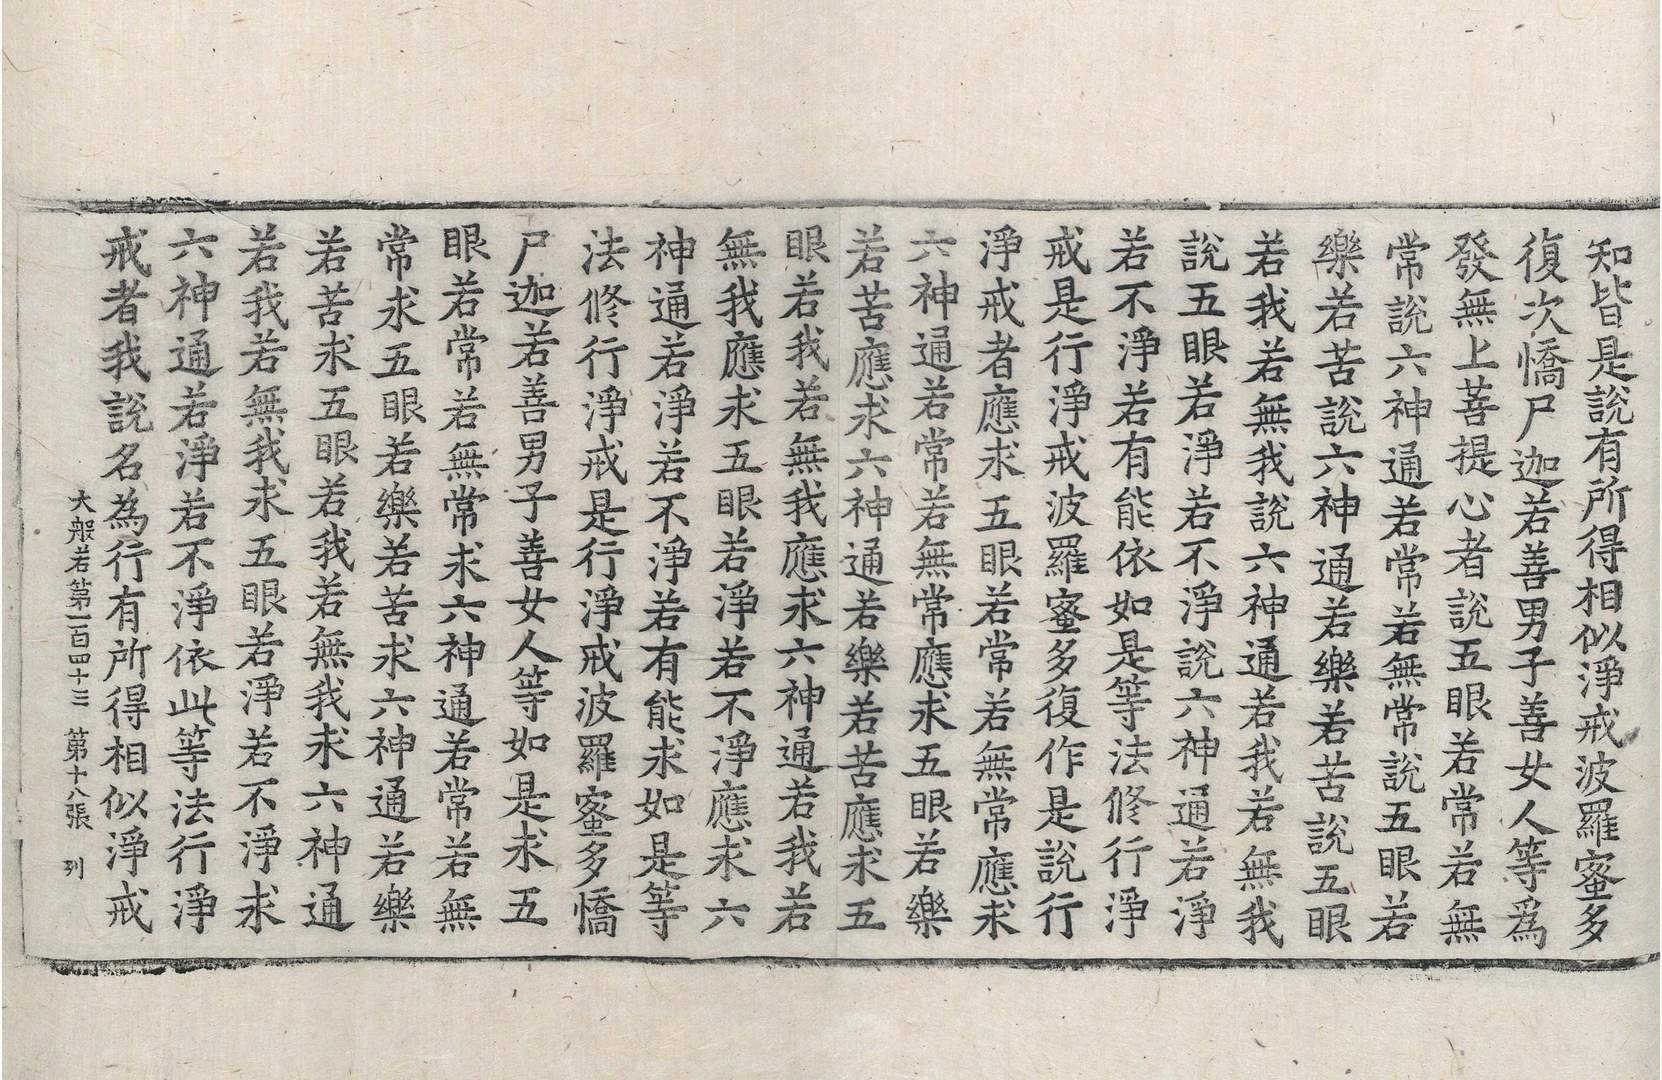 知皆是說有所得相似淨戒波羅蜜多
復次憍尸迦若善男子善女人等爲
發無上菩提心者說五眼若常若無
常說六神通若常若無常說五眼若
樂若苦說六神通若樂若苦說五眼
若我若無我說六神通若我若無我
說五眼若淨若不淨說六神通若淨
若不淨若有能依如是等法修行淨
戒是行淨戒波羅蜜多復作是說行
淨戒者應求五眼若常若無常應求
六神通若常若無常應求五眼若樂
若苦應求六神通若樂若苦應求五
眼若我若無我應求六神通若我若
無我應求五眼若淨若不淨應求六
神通若淨若不淨若有能求如是等
法修行淨戒是行淨戒波羅蜜多憍
尸迦若善男子善女人等如是求五
眼若常若無常求六神通若常若無
常求五眼若樂若苦求六神通若樂
若苦求五眼若我若無我求六神通
若我若無我求五眼若淨若不淨求
六神通若淨若不淨依此等法行淨
戒者我說名為行有所得相似淨戒
大般若第一百四十三 第十八張 列